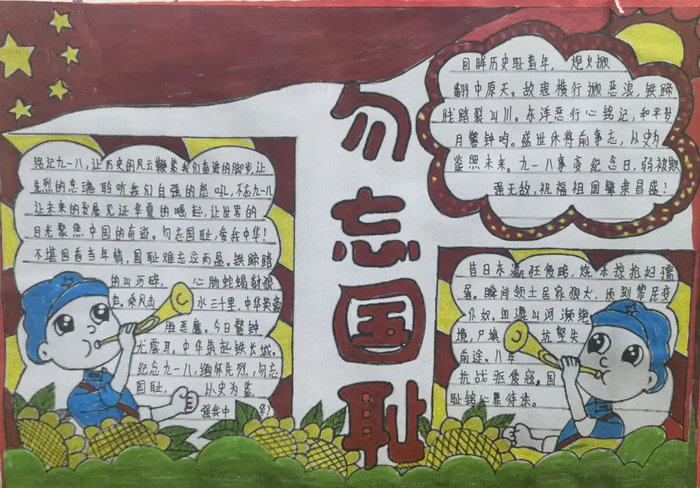 勿忘国耻
铭记九一八，让历史的风云鞭策我们奋进的脚步，让
壮烈的忠魂聆听我们自强的怒吼，不忘九一八
让未来的发展见证华夏的崛起，让世界的
目光聚焦中国的奇迹。勿忘国耻，爱我中华！
不堪回首当年情，国耻难忘泣而显。铁蹄踏
的山河碎，心肠蛇蝎豺狼
水三千里，中华英豪
恶魔，今日警钟
尤震耳，中华筑起铁长城。
纪念九一八，缅怀先烈，勿忘
国耻，以史为鉴
强我中华！
回眸历史耻羞年，炮火掀
翻中原天。敌寇横行掀恶浪，铁蹄
践踏裂山川。东洋恶行心铭记，和平
日警钟鸣。盛世休将前事忘，以史为
鉴照未来。九一八事变纪念日，弱被欺
强无敌，祝福祖国繁荣昌盛！
昔日东瀛狂侵略，烧杀掠抢妇孺
屠。瞬间领土居家狼犬，
仆奴。血遭山河濒绝
境，尸填
前途。八年
抗战驱倭寇。国
耻铭心